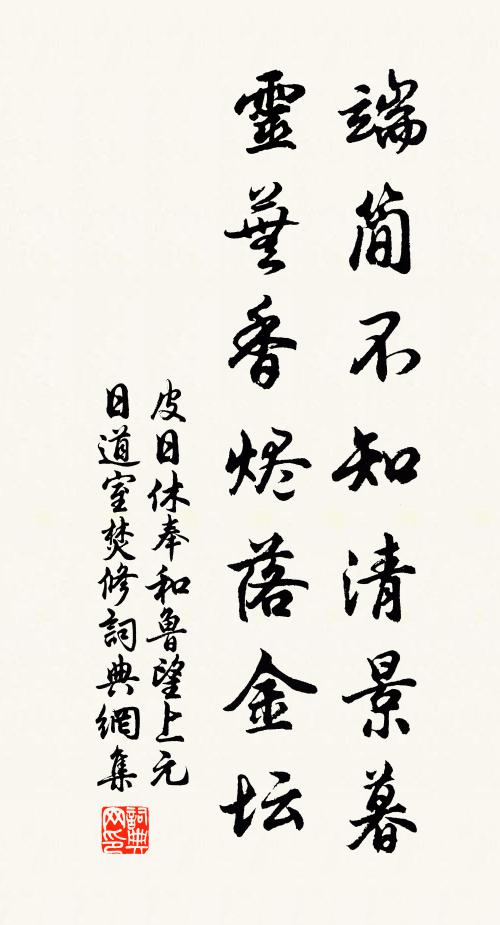 端简不知清景暮
靈蕪香烬落金坛
皮日休奉和魯望上元
日道室焚修詞典網集
詞典
网印